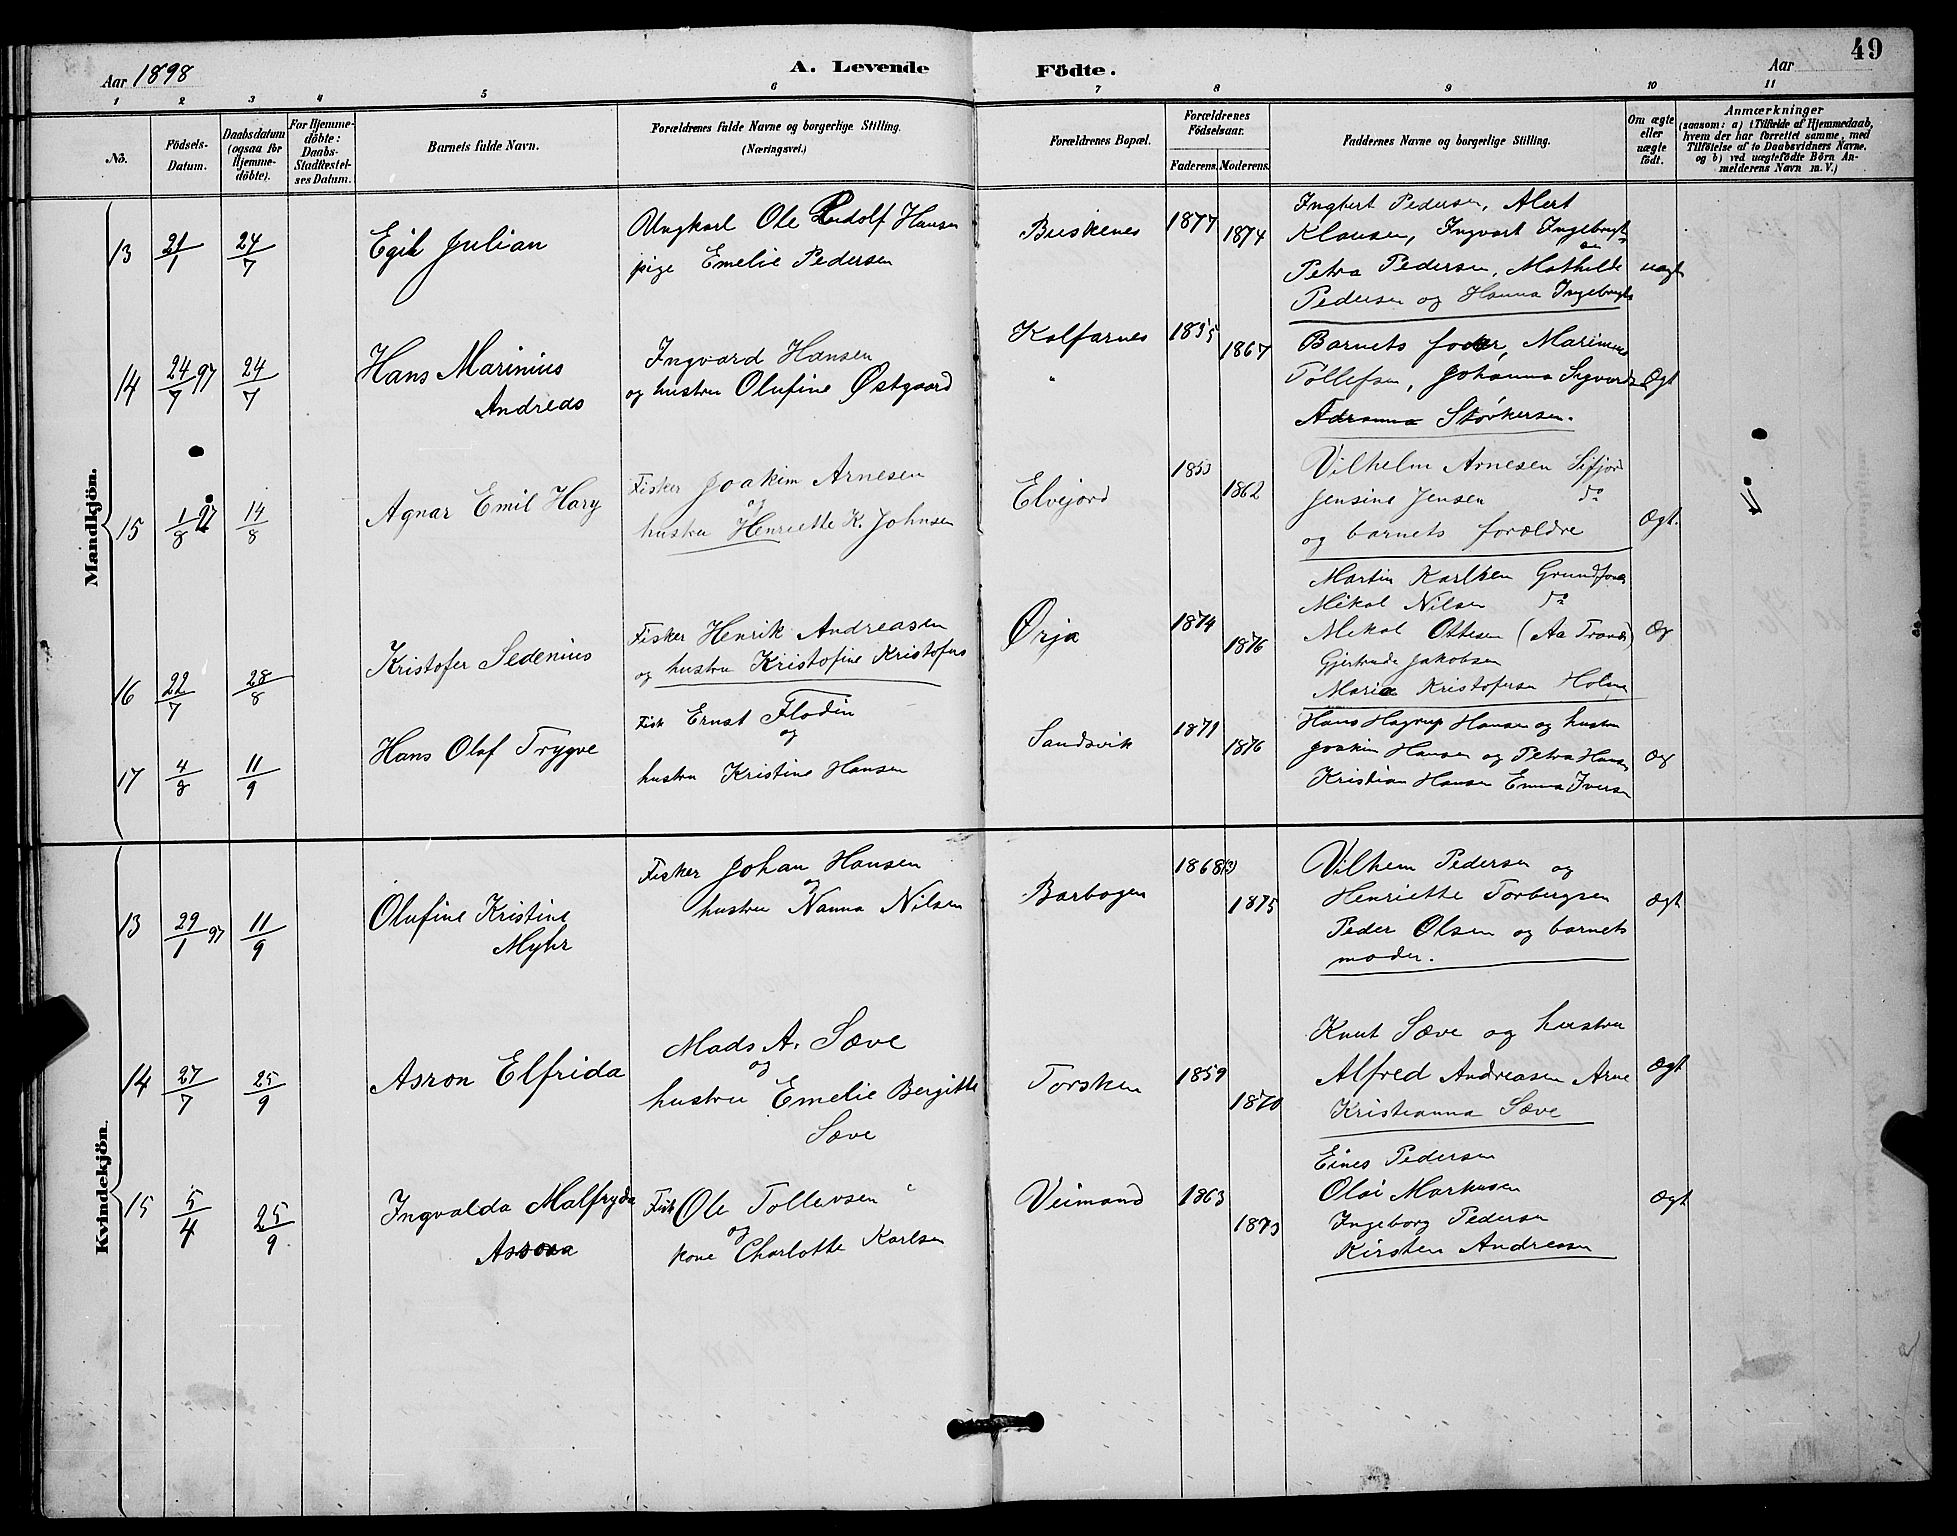 Aar 1898
A. Levende Födte.
Aar
49
1 2 3 4 5 6 7 8 9 10 11
No.
Födsels-Datum.
Daabsdatum (ogsaa for Hjemme-döbte).
For Hjemme-döbte: Daabs-Stadfæstel-ses Datum.
Barnets fulde Navn.
Forældrenes fulde Navne og borgerlige Stilling.
(Næringsvei.)
Forældrenes Bopæl.
Forældrenes Födselsaar.
Faderens. Moderens.
Faddernes Navne og borgerlige Stilling.
Om ægte eller uægte födt.
Anmærkninger
(saasom: a) i Tilfælde af Hjemmedaab,
hvem der har forrettet samme, med
Tilföielse af to Daabsvidners Navne,
og b) ved uægtefödte Börn An-
melderens Navn m. V.)
Mandkjön.
13 21/1 24/7 Egil Julian
Ungkarl Ole Rudolf Hansen
pige Emelie Pedersen
Buskenes 1877 1874
Ingbert Pedersen, Alert
Klausen, Ingvart Ingebrigt
Petra Pedersen, Mathilde
Pedersen og Hanna Ingebrigts
uægt
14 24/7 97 24/7 Hans Marinius
Andreas
Ingvard Hansen
og hustru Olufine Østgaard
Kalfarnes 1855 1867
Barnets fader, Marinus
Tollefsen, Johanna Sigvards
Adranna Størkersen.
Ægt
15 1/8 97 14/8 Agnar Emil Hary
Fisker Joakim Arnesen
og
hustru Henriette K. Johnsen
Elvejord 1853 1862
Vilhelm Arnesen Sifjord
Jensine Jensen do
og barnets forældre
Ægt.
16 22/7 28/8 Kristofer Sedenius
Fisker Henrik Andreasen
og hustru Kristofine Kristofers
Ørja 1874 1876
Martin Karlsen Grundfarnes
Mikal Nilsen do
Mikal Ottesen (Aa Tranø)
Gjertrude Jakobsen
Maria Kristofersen Holm
Æg
17 4/8 11/9 Hans Olaf Trygve
Fisk Ernst Flodin
og
hustru Kristine Hansen
Sandsvik 1871 1876
Hans Hagrup Hansen og hustru
Joakim Hansen og Petra Hansen
Kristian Hansen Emma Iversen
Æg
Kvindekjön.
13 29/1 97 11/9 Olufine Kristine
Myhr
Fisker Johan Hansen
og
hustru Nanna Nilsen
Barbogen 1868(3) 1875
Vilhem Pedersen og
Henriette Torbergsen
Peder Olsen og barnets
moder.
Ægt
14 27/7 25/9 Asron Elfrida
Mads A. Sæve
og
hustru Emelie Bergitte
Sæve
Torsken 1859 1870
Knut Sæve og hustru
Alfred Andreasen Arne
Kristianna Sæve
Ægt
15 5/4 25/9 Ingvalda Malfryda
Assora
Fisk Ole Tollevsen
og
kone Charlotte Karlsen
Veimand 1863 1873
Eines Pedersen
Olai Markusen
Ingeborg Pedersen
Kirsten Andreasen
Ægt